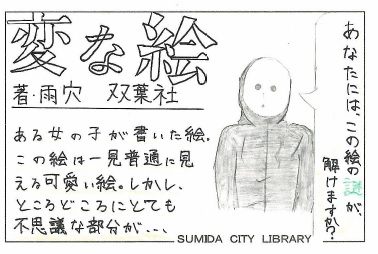 変な絵
著・雨穴 双葉社
ある女の子が書いた絵.
この絵は一見普通に見
える可愛い絵。しかし、
ところどころにとても
不思議な部分が...、
あなたには、この絵の謎が、
解けますか?
SUMIDA CITY LIBRARY